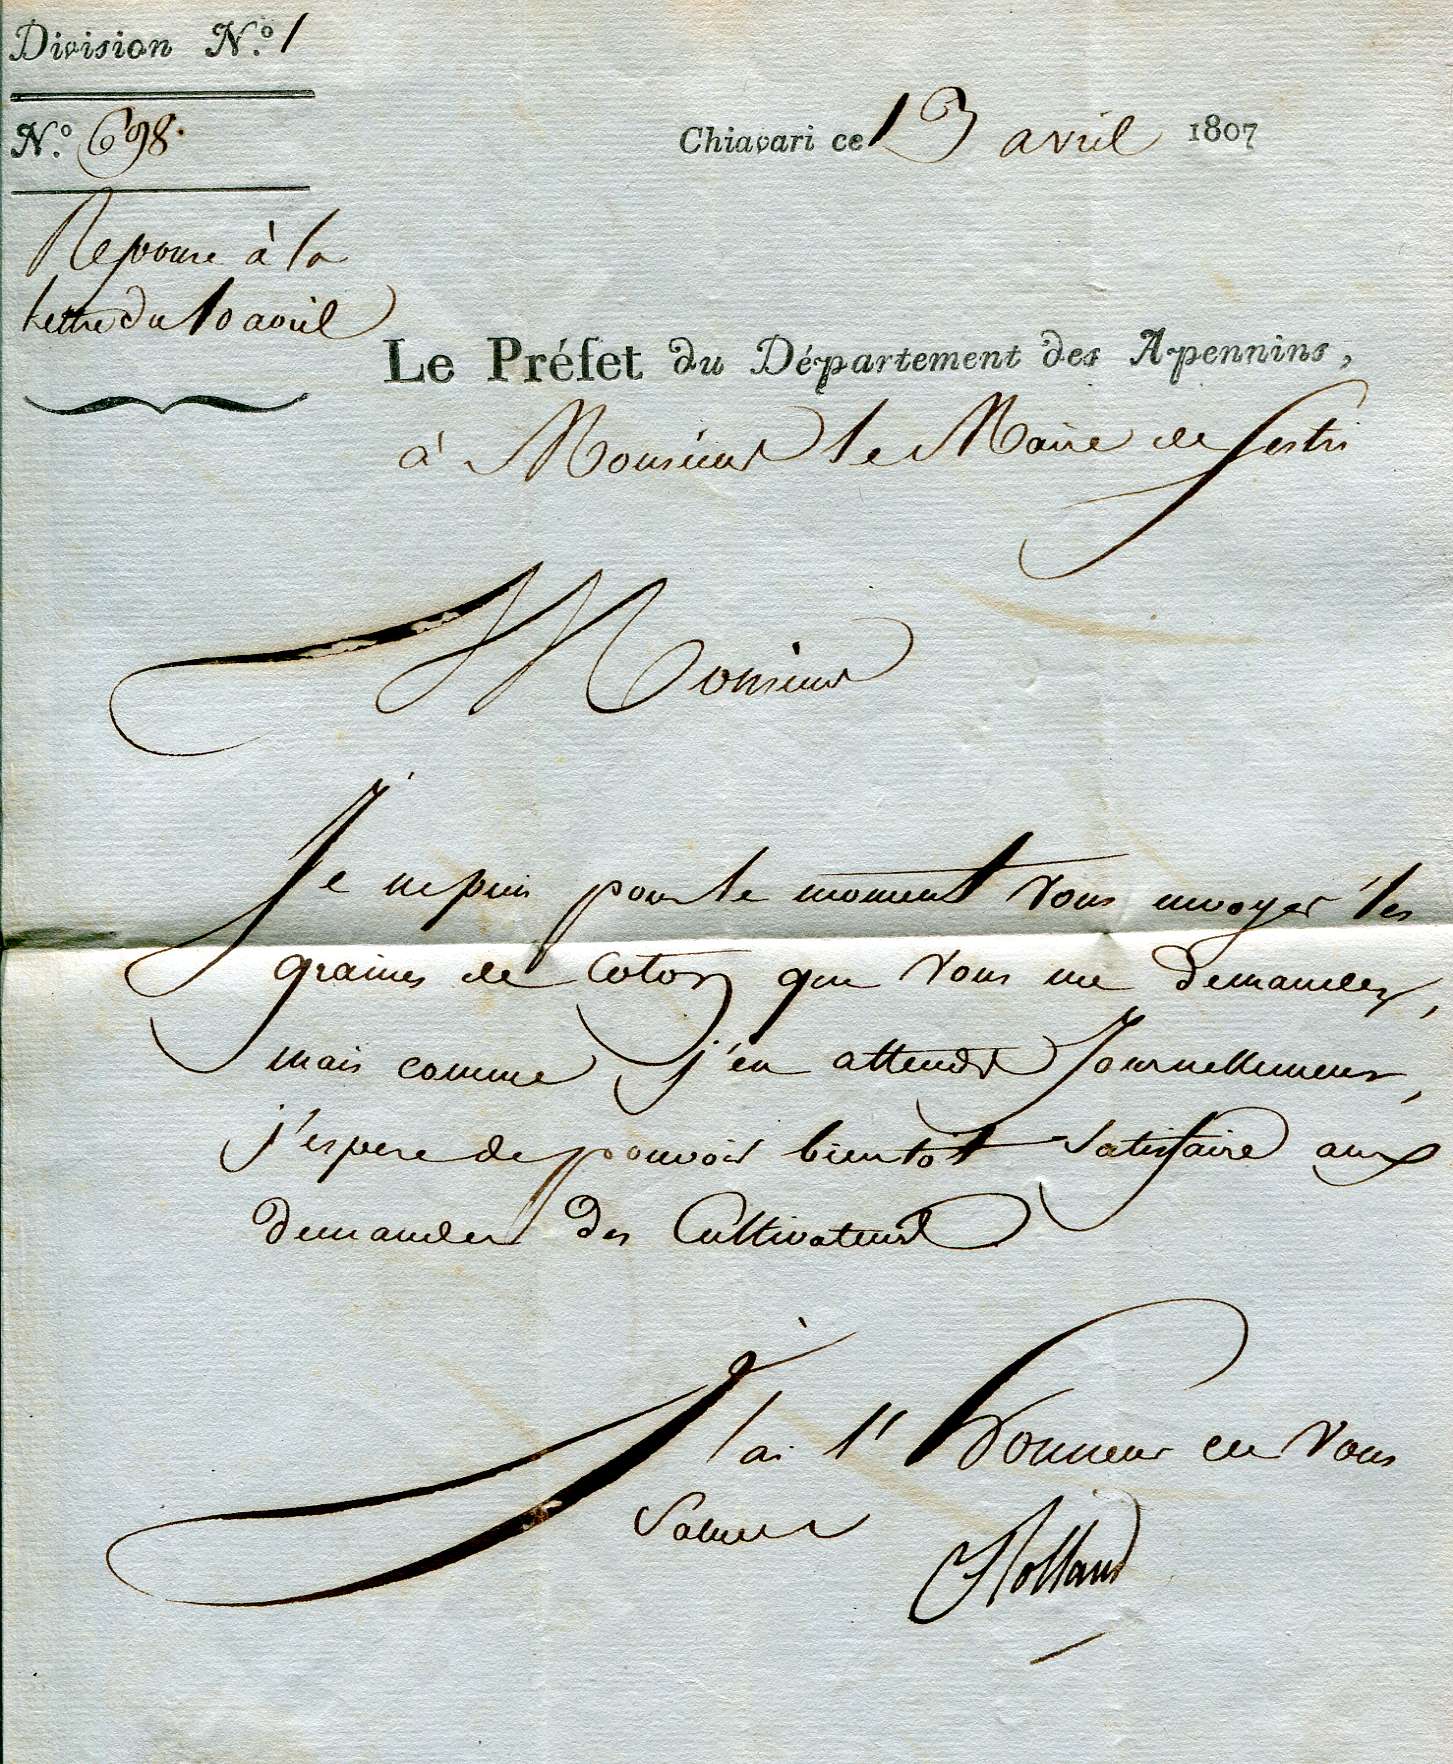 Division N.º 1
N.º 698.
Chiavari ce 13 avril 1807
Reponse à la
Lettre du 10 avril
Le Préfet du Département des Apennins,
à Monsieur le Maire de Sestri
Monsieur
Je ne puis pour le moment vous envoyer les
graines de Coton que vous me demandez,
mais comme j'en attends Journellement,
j'espere de pouvoir bientôt satisfaire aux
demandes des Cultivateurs
J'ai l'honneur de vous
saluer
Rolland